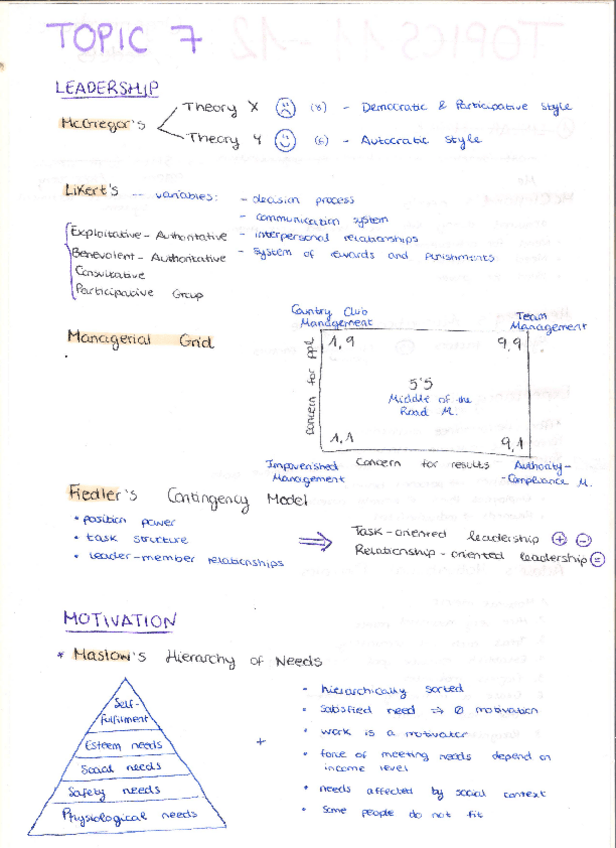 TOPIC 7
LEADERSHIP
McGregor's
Theory X ☹ (8) - Democratic & Participative Style
Theory Y ☺ (6) - Autocratic Style
Likert's -- variables: - decision process
- communication system
Exploitative - Authoritative - interpersonal relationships
Benevolent - Authoritative - system of rewards and punishments
Consultative
Participative Group
Managerial Grid
Country Club Management
Team Management
1,9 9,9
Concern for ppl
5'5
Middle of the
Road M.
1,1 9,1
Impoverished Management
Concern for results
Authority-
-Compliance M.
Fiedler's Contingency Model
• position power
• task structure
• leader-member relationships
⇒ Task-oriented leadership ⊕ ⊖
Relationship-oriented leadership ⊜
MOTIVATION
* Maslow's Hierarchy of Needs
Self-
fulfilment
Esteem needs
Social needs
Safety needs
Physiological needs
+
• hierarchically sorted
• satisfied need ⇒ Ø motivation
• work is a motivator
• force of meeting needs depend on
income level
• needs affected by social context
• Some people do not fit